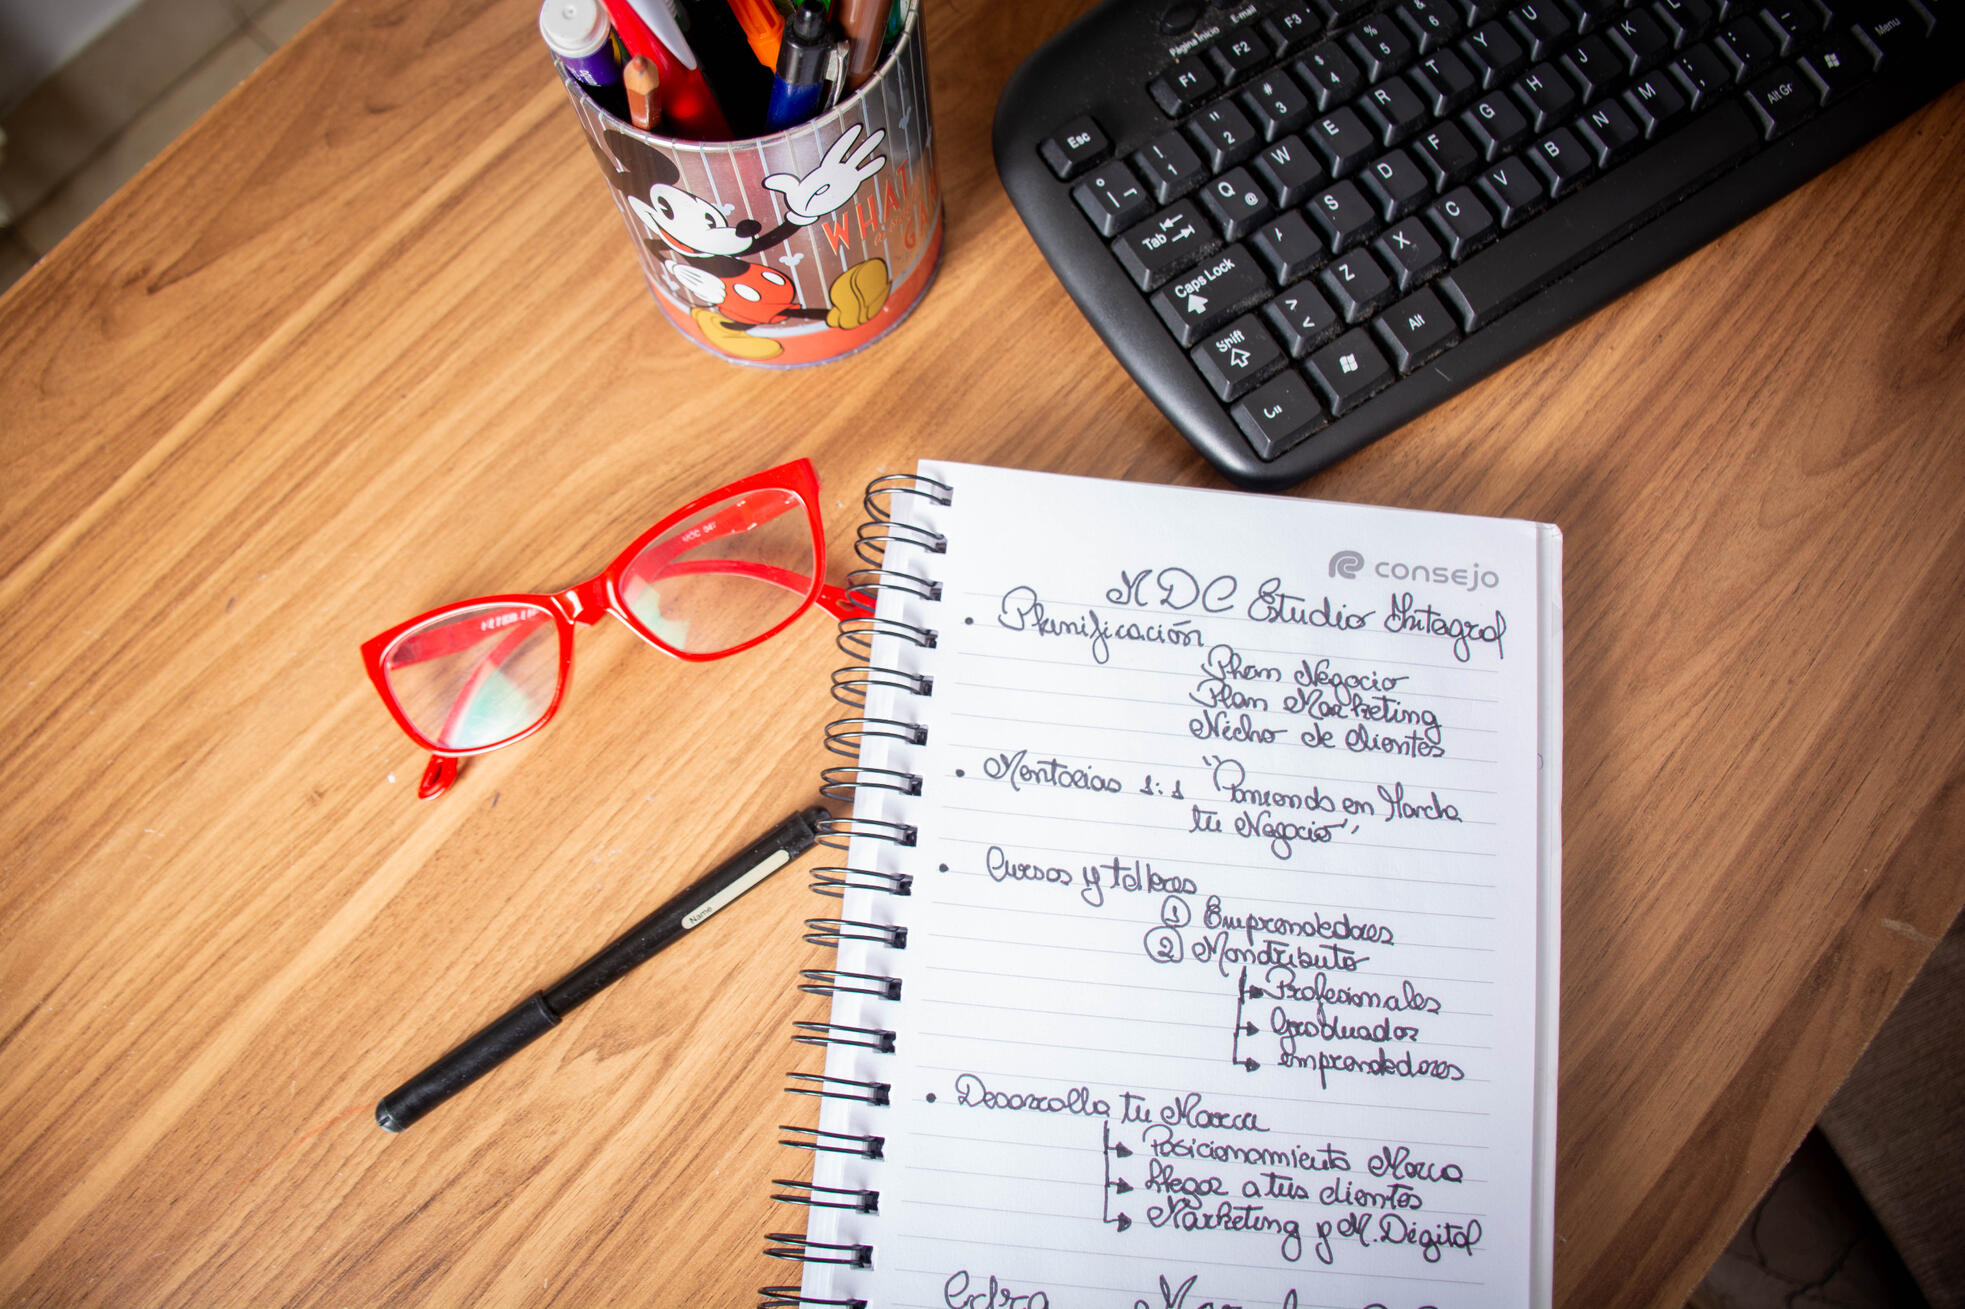 WHAT
consejo
MDC Estudio Integral
• Planificación
Plan Negocio
Plan Marketing
Nicho de clientes
• Mentorias 1:1 "Poniendo en Marcha
tu Negocio"
• Cursos y talleres
① Emprendedores
② Monotributo
Profesionales
Graduador
emprendedores
• Desarrolla tu Marca
Posicionamiento Marca
Llegar a tus clientes
Marketing y M. Digital
Name
Página Inicio
E-mail
F1 F2 F3
Esc
1 2 3 4 5 6
Tab Q W E R T Y U
Caps Lock A S D F G H J K L
Shift Z X C V B N M
Alt Alt Gr Menu